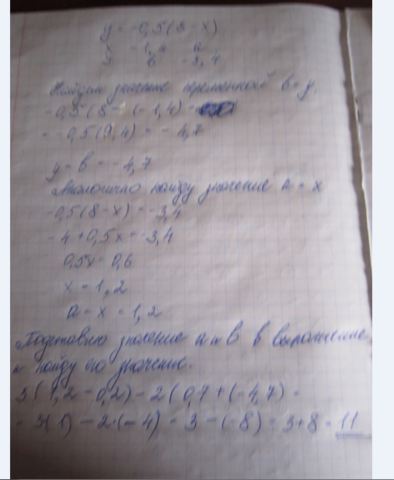 y = -0,5(8-x)
x -1,4 a
y b -3,4
Найдём значение переменной b=y.
-0,5(8-(-1,4)=
= -0,5(9,4) = -4,7
y=b=-4,7
Аналогично найду значение a=x
-0,5(8-x)=-3,4
-4+0,5x=-3,4
0,5x=0,6
x=1,2
a=x=1,2
Подставлю значение a и b в выражение
и найду его значение.
3(1,2-0,2)-2(0,7+(-4,7)=
=3(1)-2·(-4)=3-(-8)=3+8=11